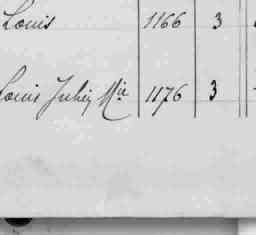 Louis 1166 3
Louis Julien Mie 1176 3